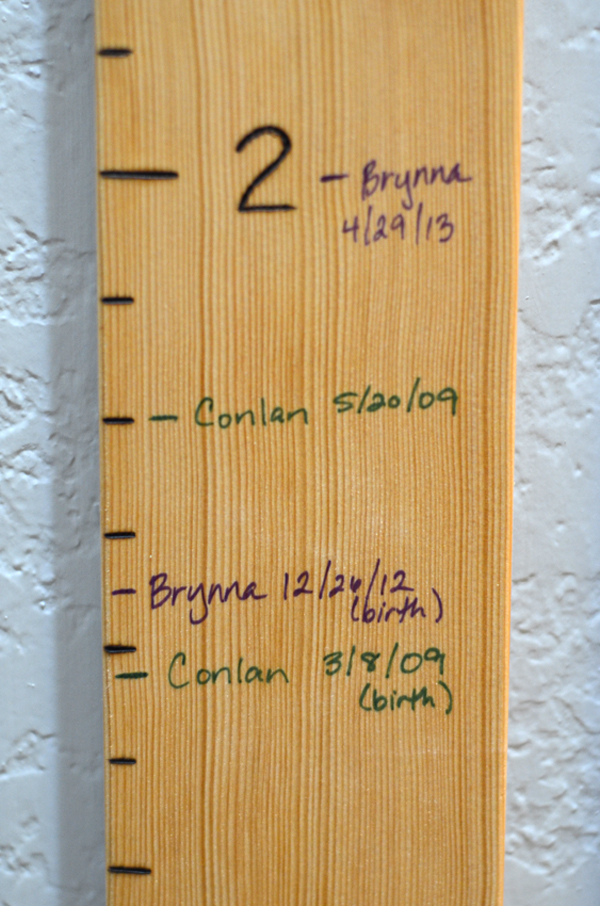 2 - Brynna
4/29/13
- Conlan 5/20/09
- Brynna 12/26/12
(birth)
- Conlan 3/8/09
(birth)